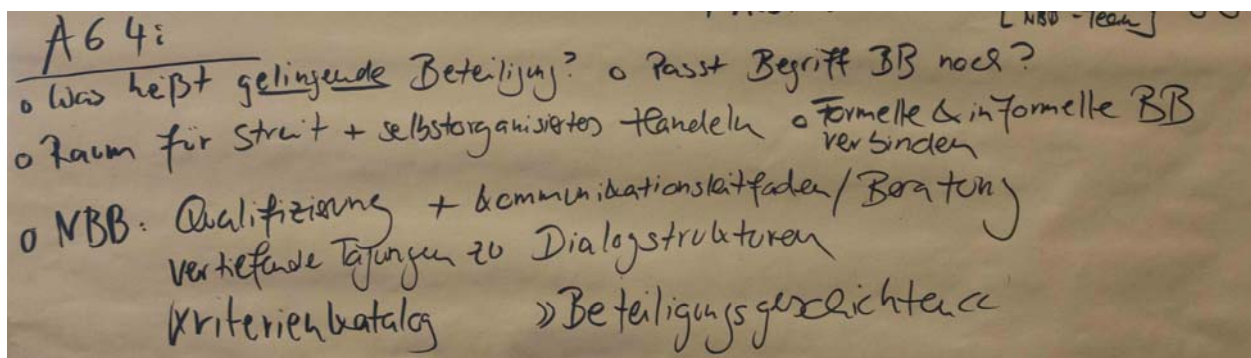 [NBB-Team]
AG 4:
o Was heißt gelingende Beteiligung? o Passt Begriff BB noch?
o Raum für Streit + selbstorganisiertes Handeln o Formelle & informelle BB
verbinden
o NBB: Qualifizierung + Kommunikationsleitfaden/Beratung
vertiefende Tagungen zu Dialogstrukturen
Kriterienkatalog »Beteiligungsgeschichten«